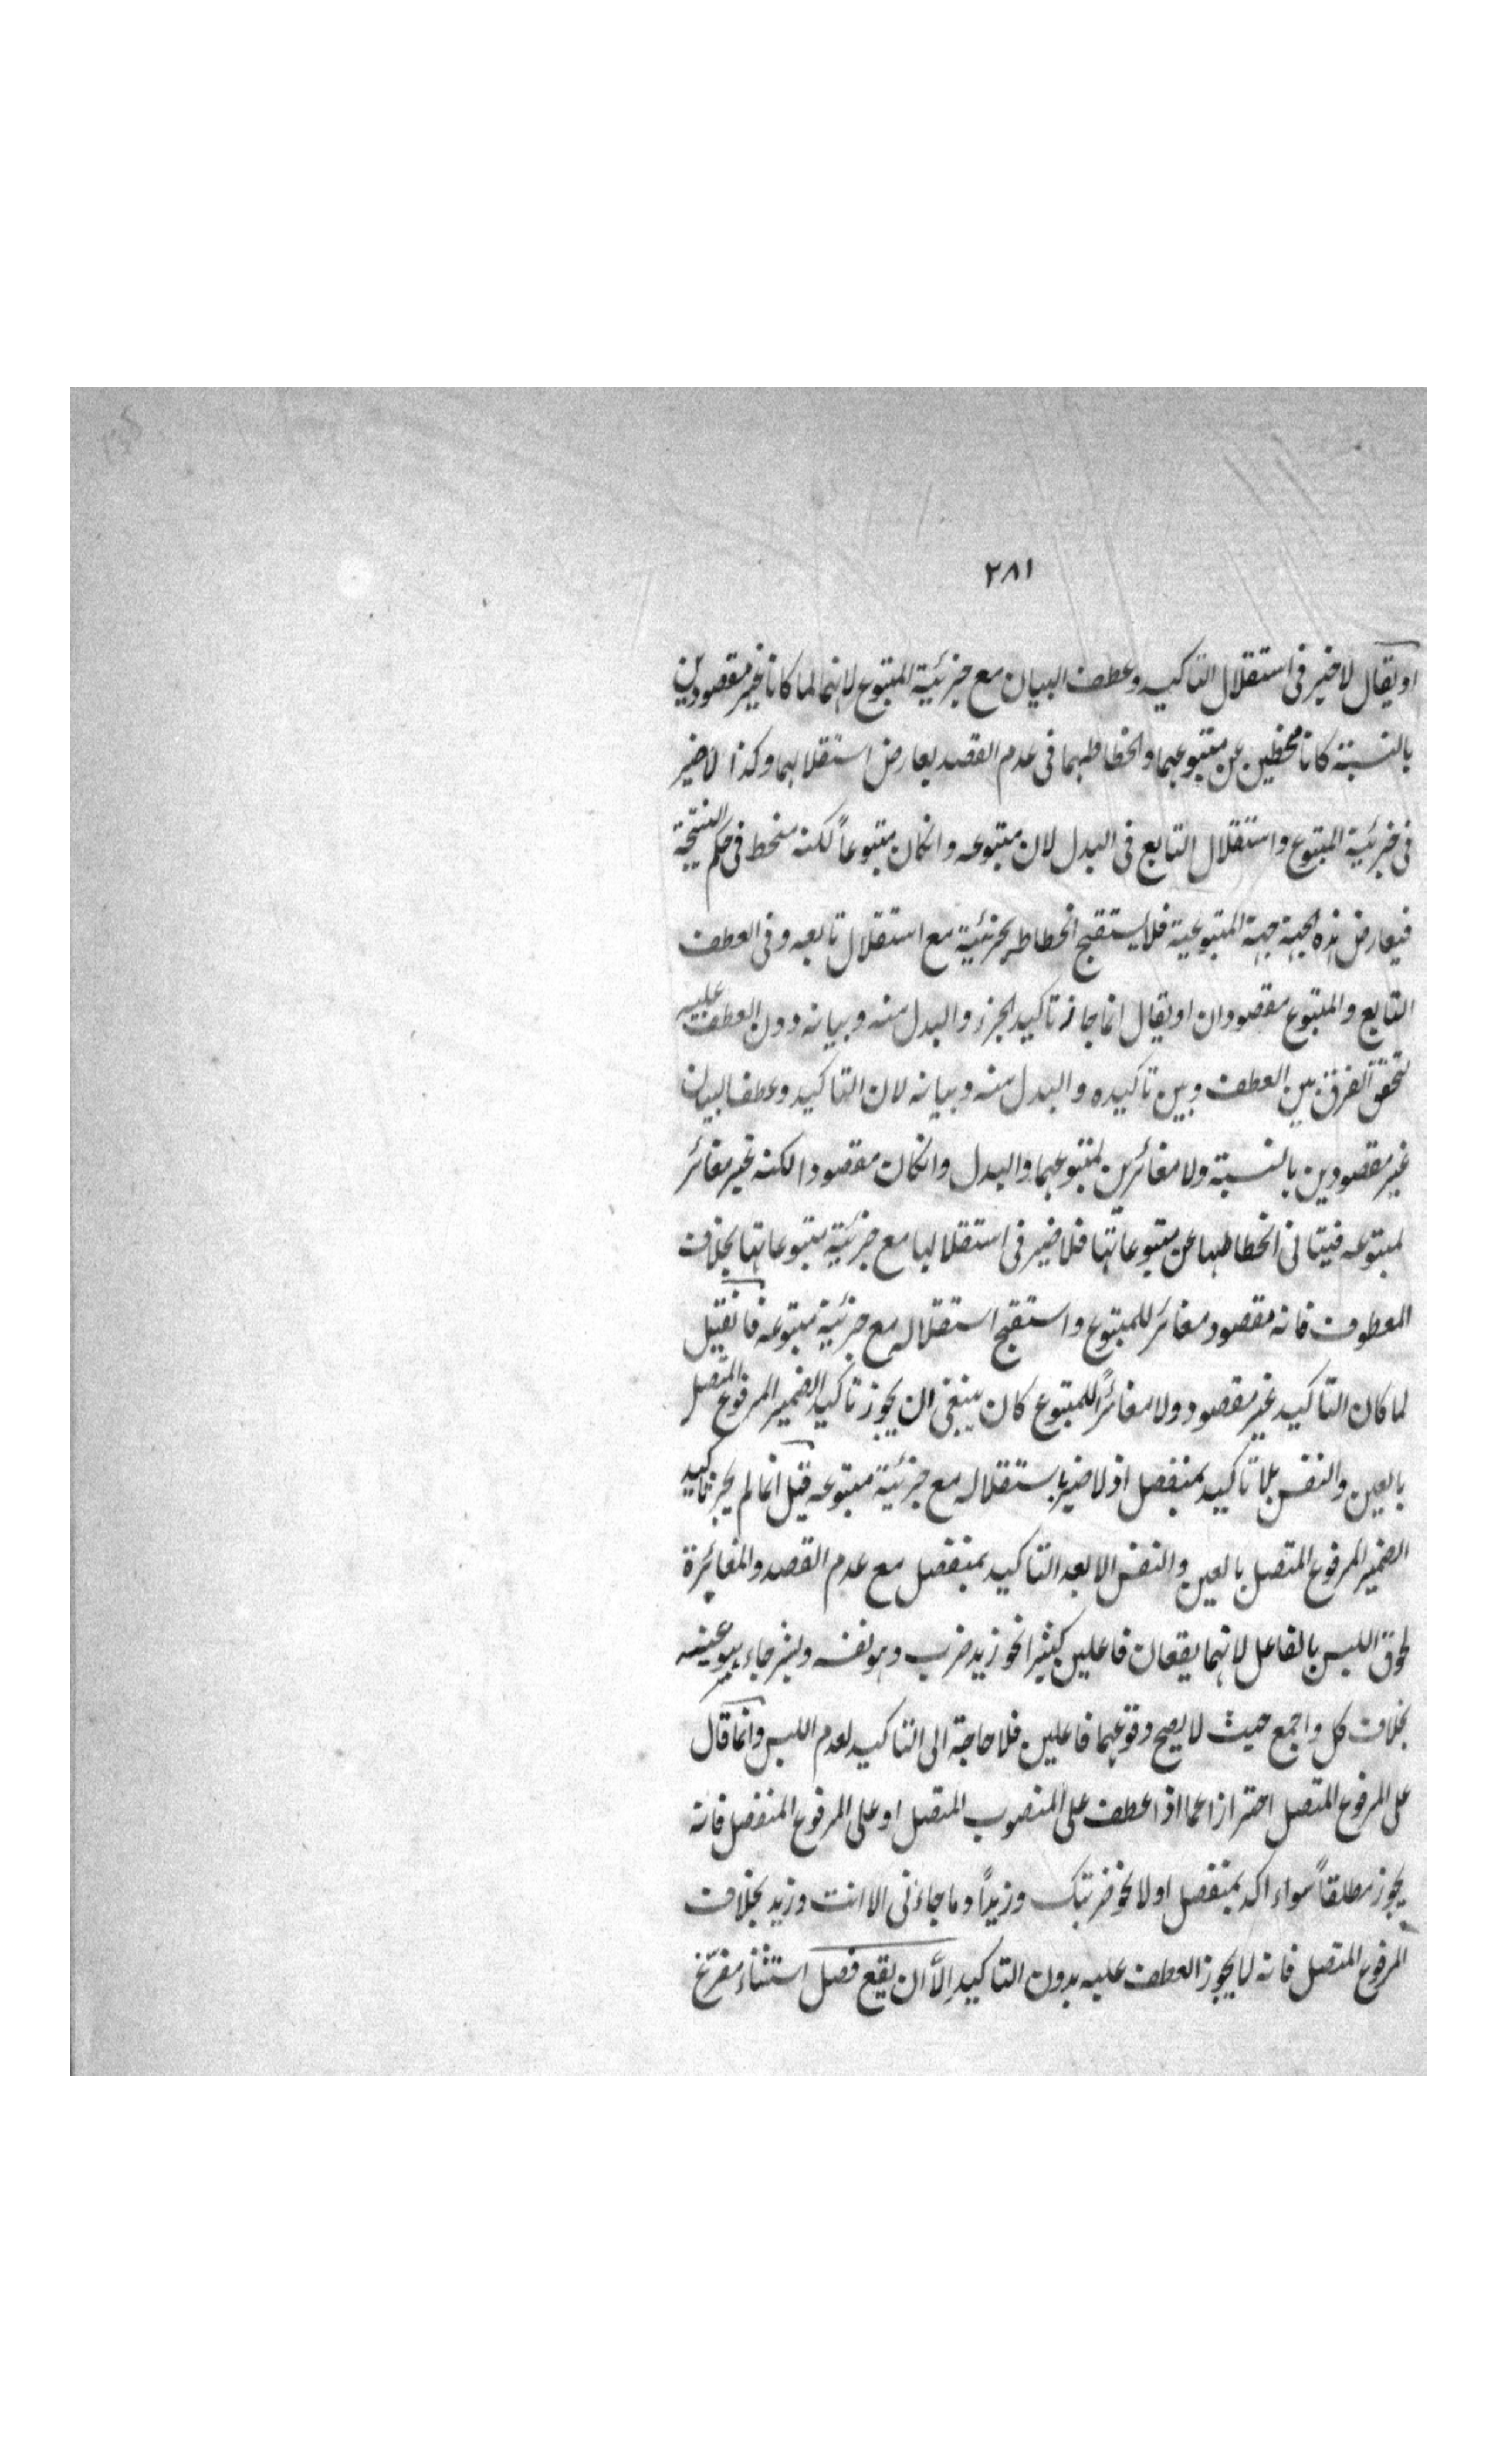 ٢٨١
او يقال لا ضير فى استقلال التاكيد وعطف البيان مع جزئية المتبوع لانهما لما كانا غير مقصودين
بالنسبة كانا منحطين عن متبوعهما وانحطاطهما فى عدم القصد يعارض استقلالهما وكذا لا ضير
فى جزئية المتبوع واستقلال التابع فى البدل لان متبوعه وانكان متبوعاً لكنه منحط فى حكم
فيعارض هذه الجهة جهة المتبوعية فلا يستقبح انحطاط بجزئية مع استقلال تابعه وفى العطف
التابع والمتبوع مقصودان او يقال انما جاز تاكيد الجزء والبدل منه وبيانه دون العطف عليه
لتحقق الفرق بين العطف وبين تاكيده والبدل منه وبيانه لان التاكيد وعطف البيان
غير مقصودين بالنسبة ولا مغائرين لمتبوعهما والبدل وانكان مقصودا لكنه غير مغائر
لمتبوعه فيتاتى انحطاطها عن متبوعاتها فلا ضير فى استقلالها مع جزئية متبوعاتها بخلاف
المعطوف فانه مقصود مغائر للمتبوع واستقبح استقلاله مع جزئية متبوعه فانقيل
لما كان التاكيد غير مقصود ولا مغائراً للمتبوع كان ينبغى ان يجوز تاكيد الضمير المرفوع المتصل
بالعين والنفس بلا تاكيد بمنفصل اذ لا ضير باستقلاله مع جزئية متبوعه قيل انما لم يجز تاكيد
الضمير المرفوع المتصل بالعين والنفس الا بعد التاكيد بمنفصل مع عدم القصد والمغائرة
لخوف اللبس بالفاعل لانهما يقعان فاعلين كثيرا نحو زيد ضرب وهو نفسه وبشر جاء هو عينه
بخلاف كل واجمع حيث لا يصح وقوعهما فاعلين فلا حاجة الى التاكيد لعدم اللبس وانما قال
على المرفوع المتصل احترازا عما اذا عطف على المنصوب المتصل او على المرفوع المنفصل فانه
يجوز مطلقاً سواء اكد بمنفصل اولا نحو ضربتك وزيداً وما جاءنى الا انت وزيد بخلاف
المرفوع المتصل فانه لا يجوز العطف عليه بدون التاكيد الّا ان يقع فصل استثناء مفرغ